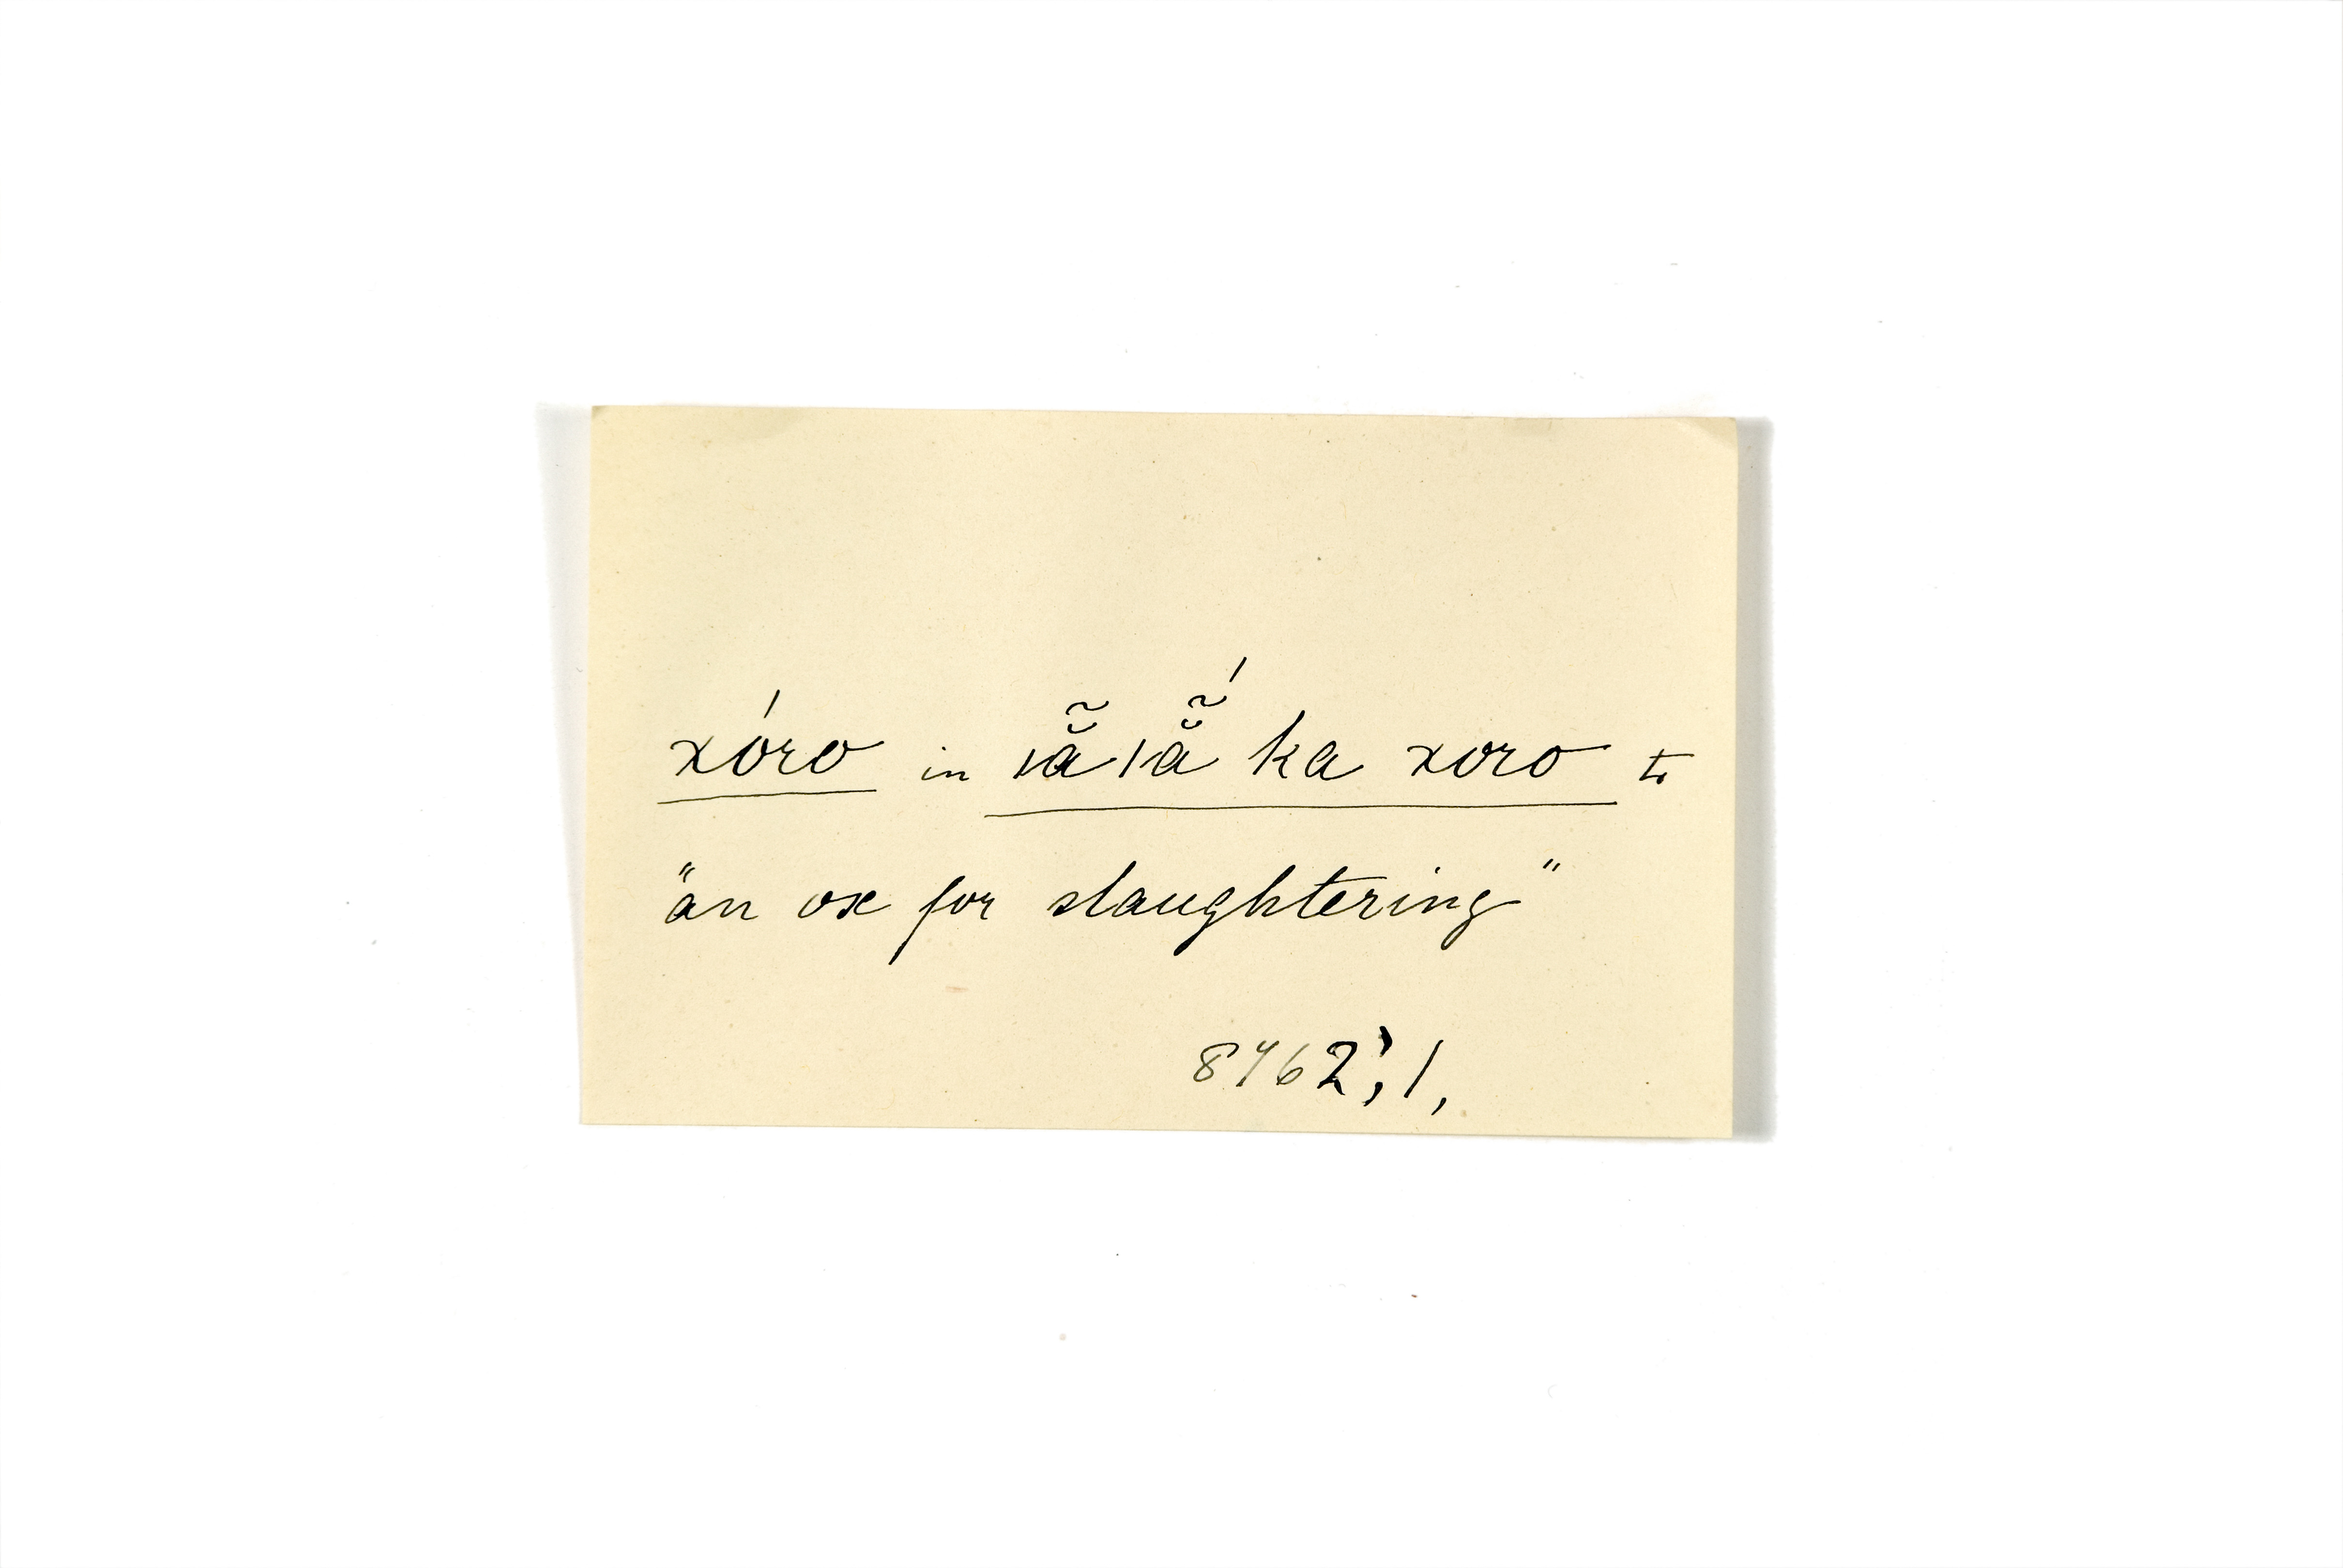 xóro in ıä̃ıä̃́ ka xoro tr
"an ox for slaughtering"
8762'; 1,